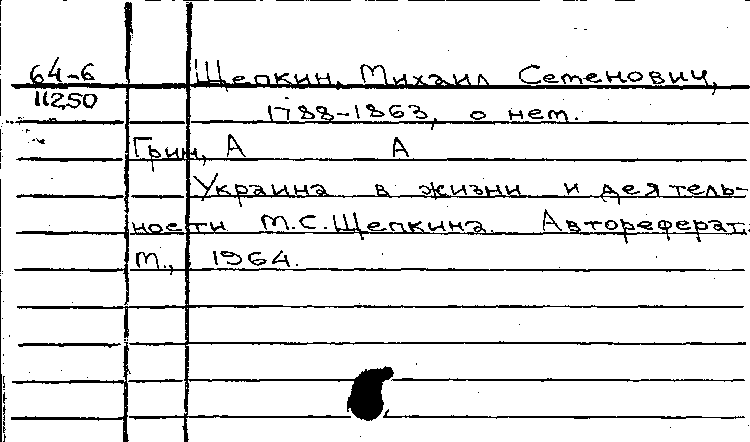 64-6
11250
Щепкин, Михаил Семенович,
1788-1863, о нем.
Грин, А А
Украина в жизни и деятель-
ности М.С.Щепкина. Автореферат.
М., 1964.